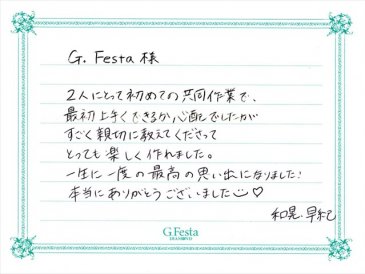 G. Festa 様
2人にとって初めての共同作業で、
最初上手くできるか心配でしたが
すごく親切に教えてくださって
とっても楽しく作れました。
一生に一度の最高の思い出になりました!
本当にありがとうございました
和晃・早紀
G.Festa
DIAMOND